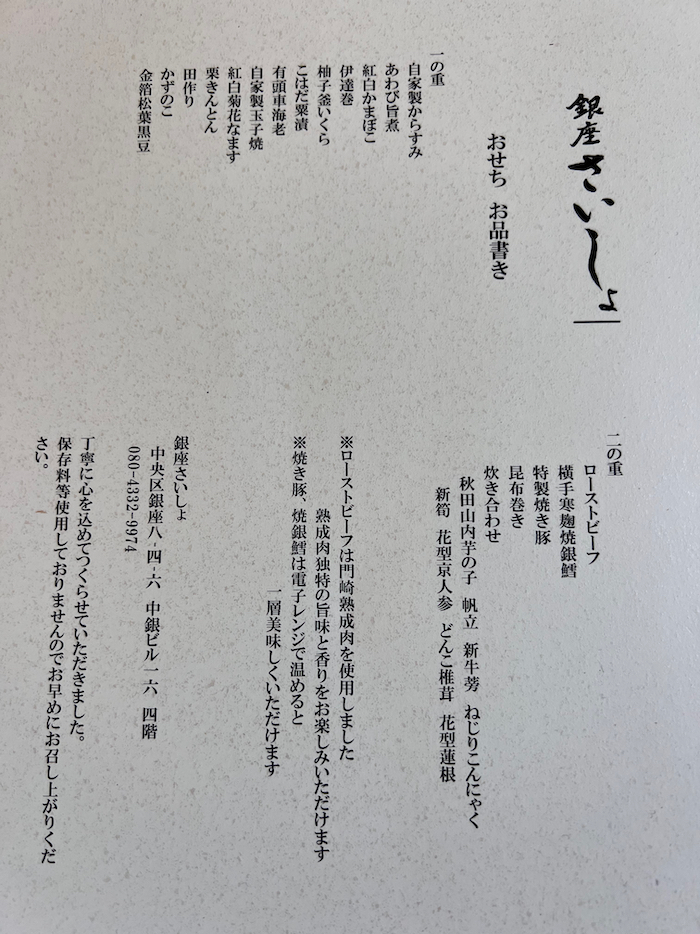 銀座さいしょ
おせち　お品書き
一の重
自家製からすみ
あわび旨煮
紅白かまぼこ
伊達巻
柚子釜いくら
こはだ粟漬
有頭車海老
自家製玉子焼
紅白菊花なます
栗きんとん
田作り
かずのこ
金箔松葉黒豆
二の重
ローストビーフ
横手寒麹焼銀鱈
特製焼き豚
昆布巻き
炊き合わせ
秋田山内芋の子　帆立　新牛蒡　ねじりこんにゃく
新筍　花型京人参　どんこ椎茸　花型蓮根
※ローストビーフは門崎熟成肉を使用しました
熟成肉独特の旨味と香りをお楽しみいただけます
※焼き豚、焼銀鱈は電子レンジで温めると
一層美味しくいただけます
銀座さいしょ
中央区銀座八-四-六　中銀ビル一六　四階
080-4332-9974
丁寧に心を込めてつくらせていただきました。
保存料等使用しておりませんのでお早めにお召し上がりくだ
さい。